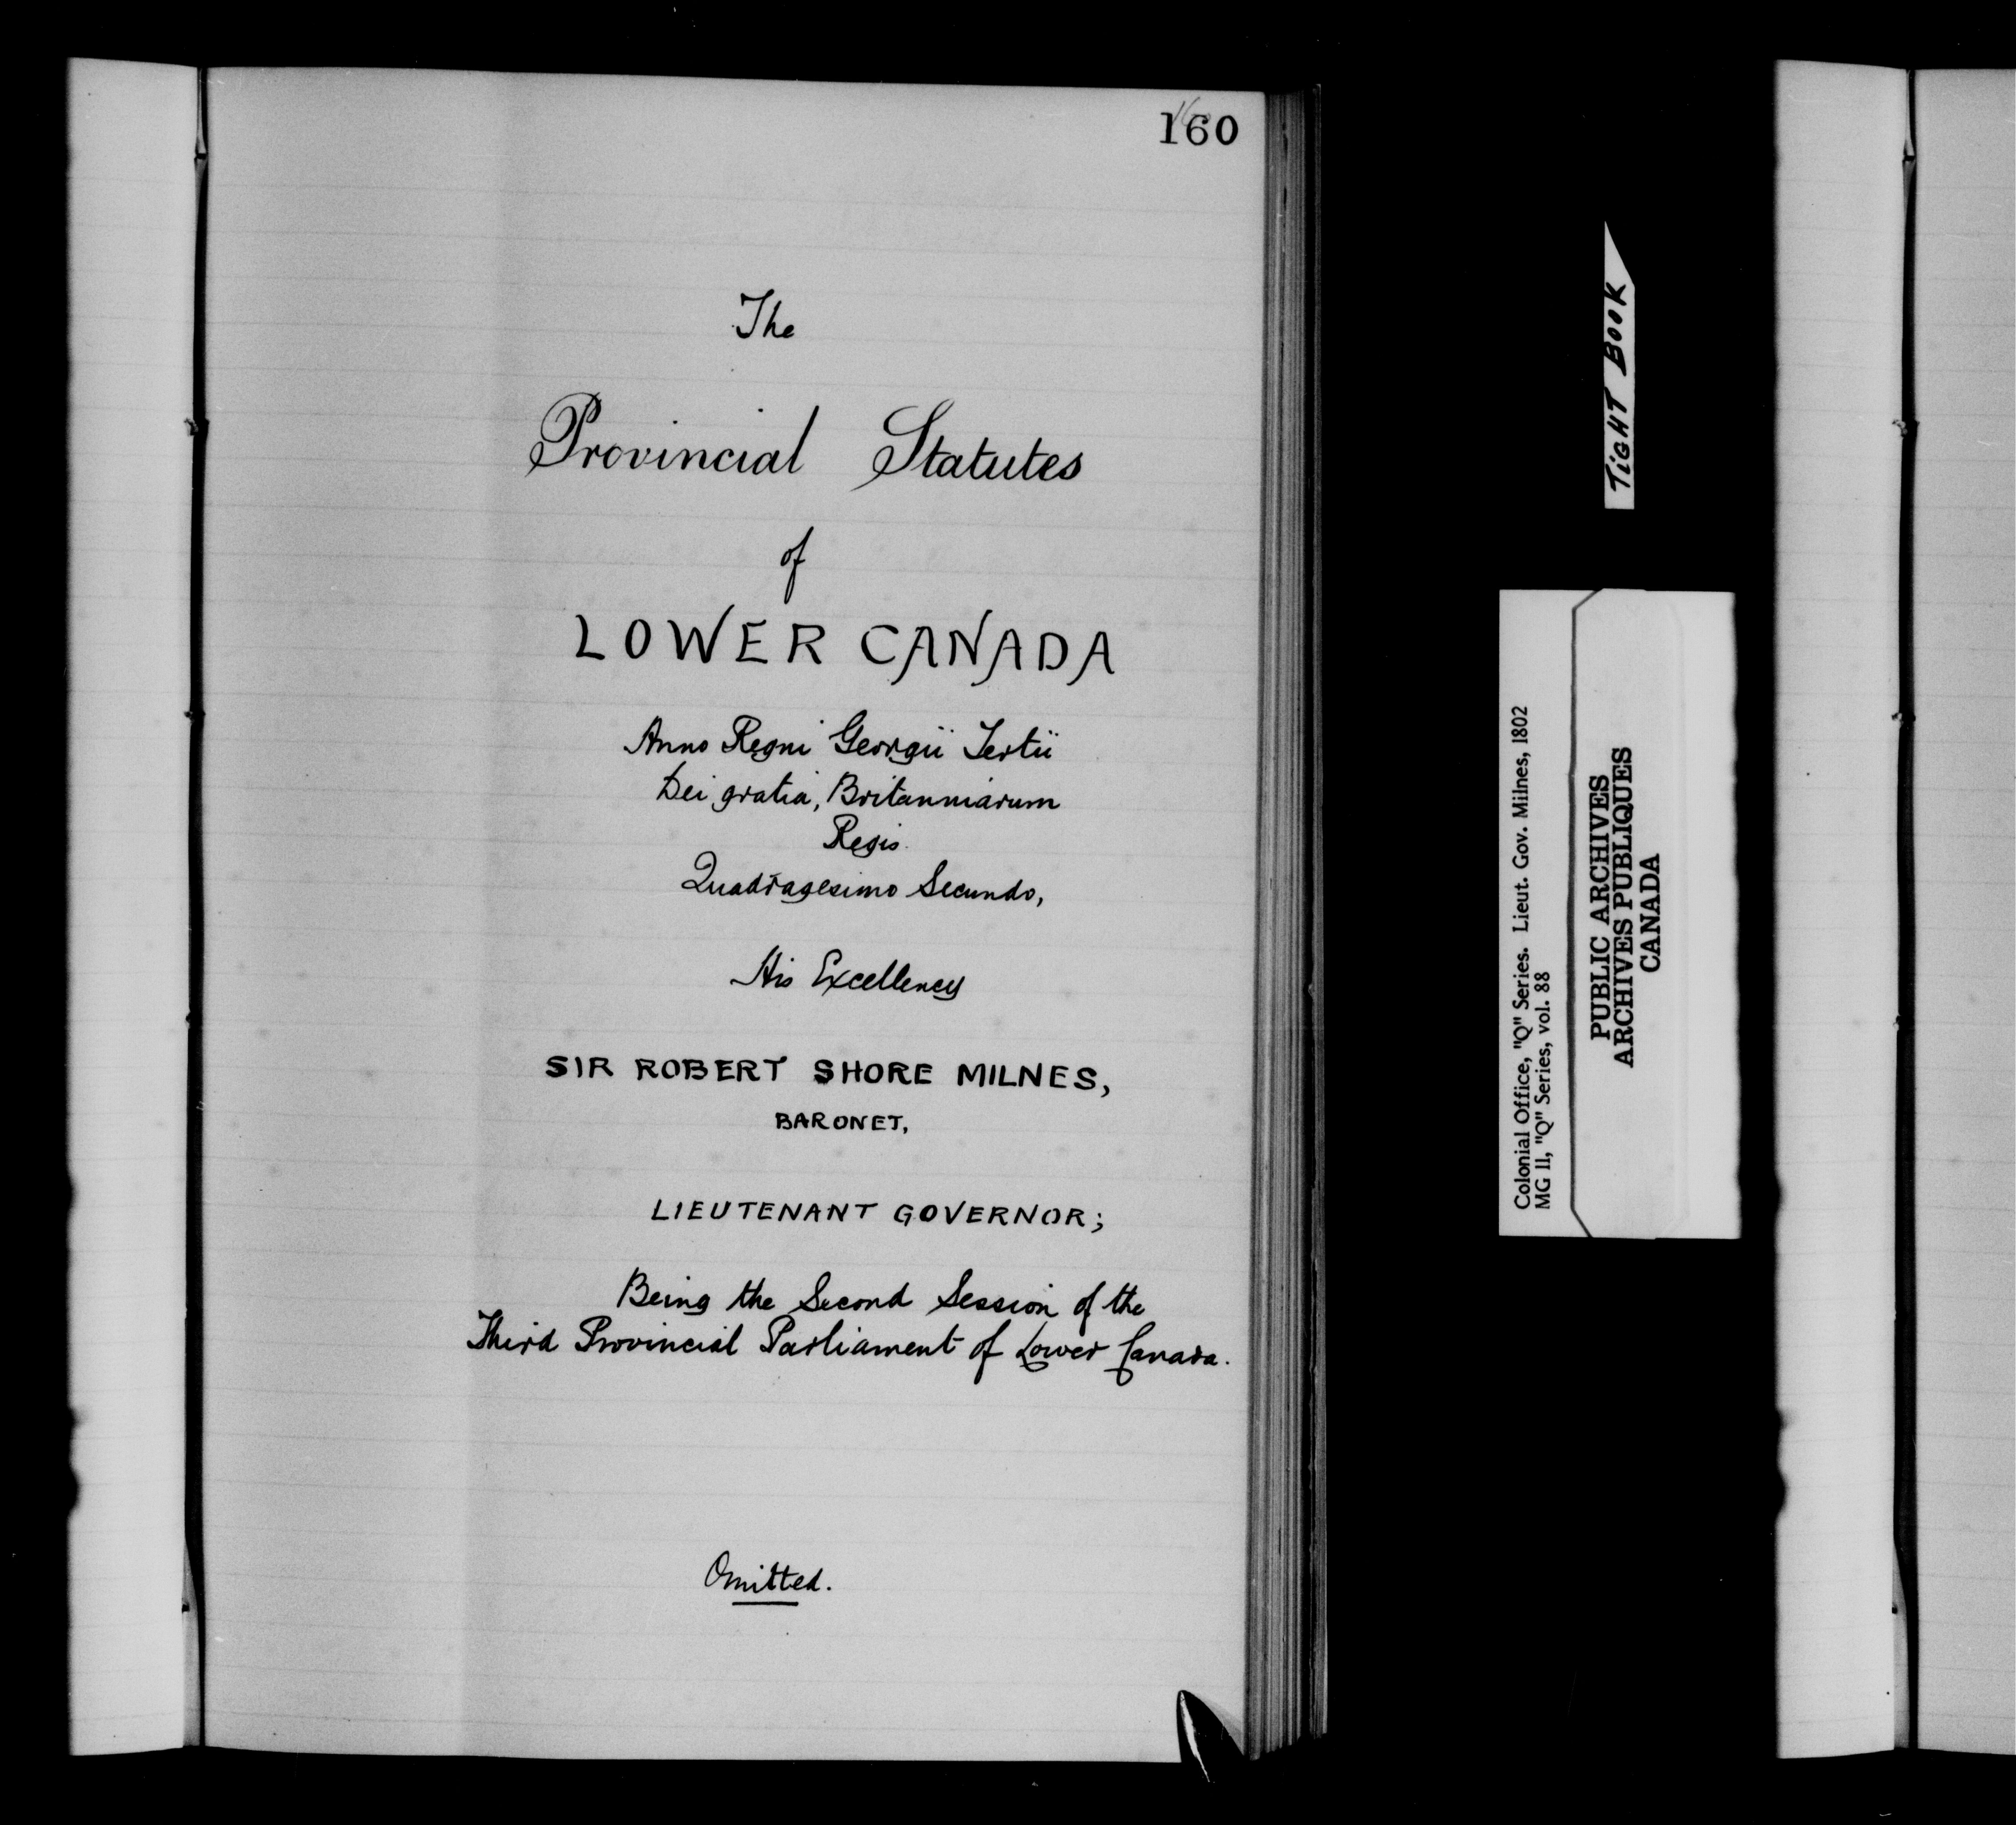 160
The
Provincial Statutes
of
LOWER CANADA
Anno Regni Georgii Tertii
Dei gratia, Britanniarum
Regis.
Quadragesimo Secundo,
His Excellency
SIR ROBERT SHORE MILNES,
BARONET,
LIEUTENANT GOVERNOR;
Being the Second Session of the
Third Provincial Parliament of Lower Canada.
Omitted.
TIGHT BOOK
Colonial Office, "Q" Series. Lieut. Gov. Milnes, 1802
MG 11, "Q" Series, vol. 88
PUBLIC ARCHIVES
ARCHIVES PUBLIQUES
CANADA